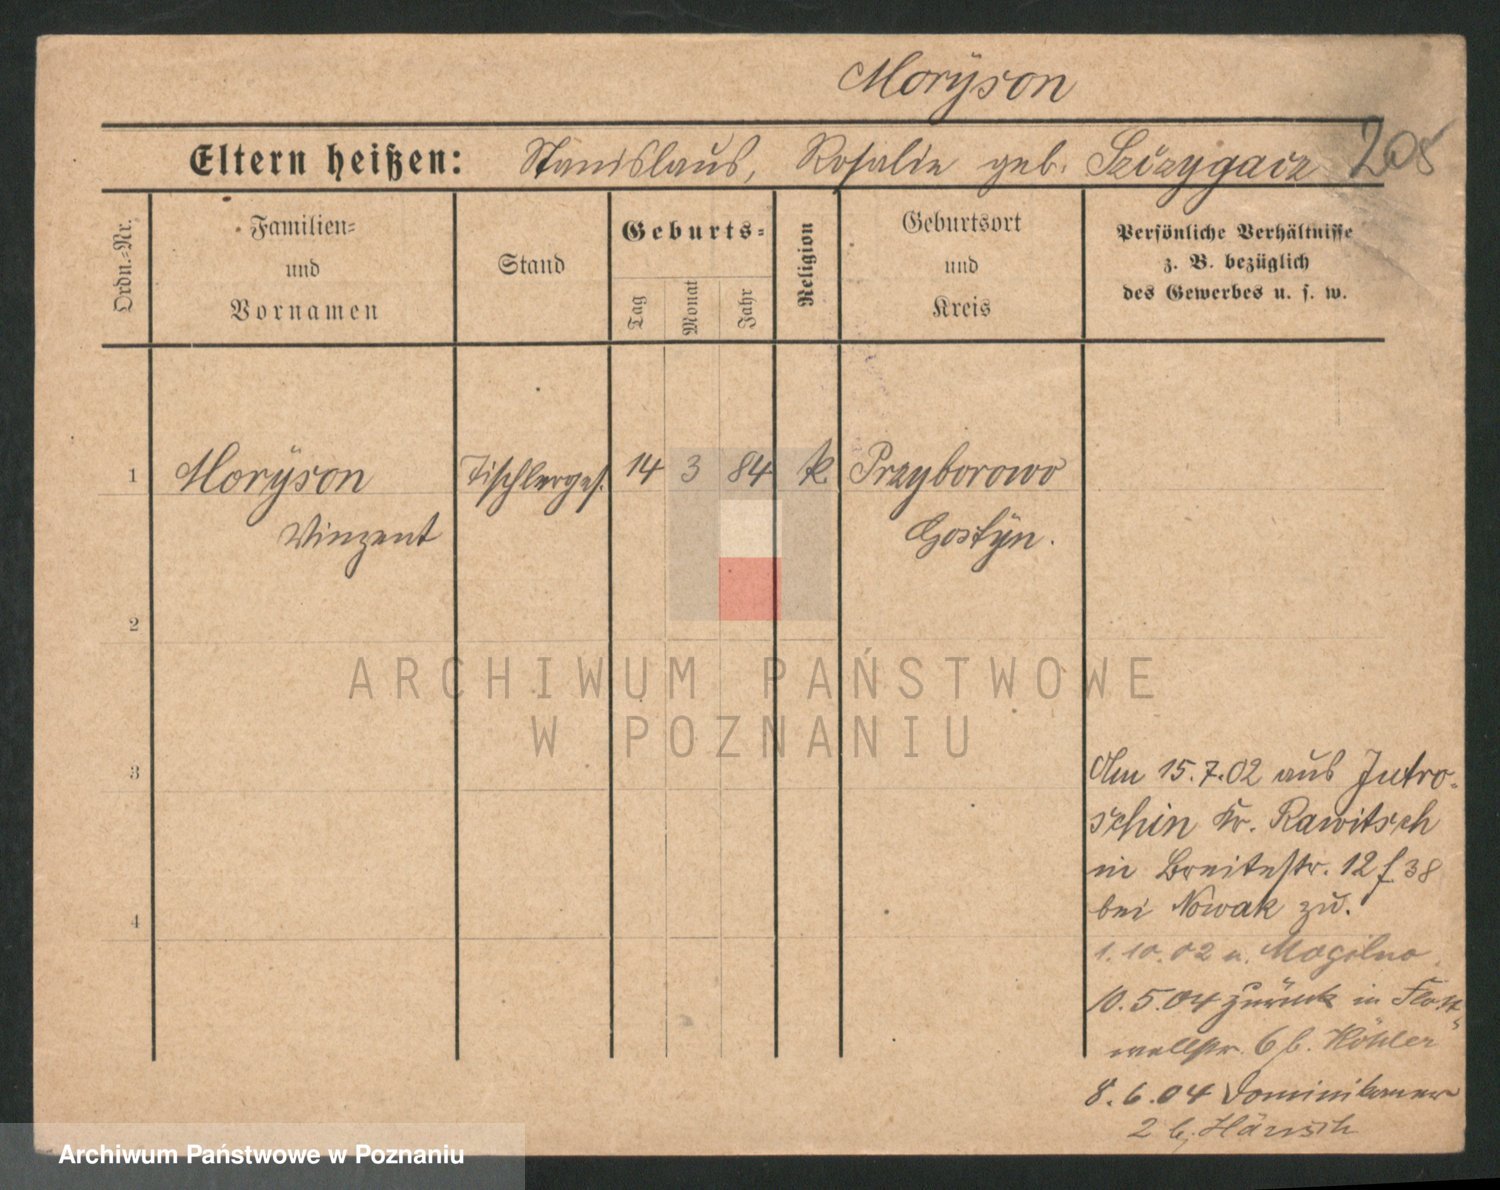 Morÿson
Eltern heißen: Stanislaus, Rosalie geb. Szczygacz 205
Ordn.-Nr.
Familien-
und
Vornamen
Stand
Geburts-
Tag
Monat
Jahr
Religion
Geburtsort
und
Kreis
Persönliche Verhältnisse
z. B. bezüglich
des Gewerbes u. s. w.
1 Morÿson Tischlerges. 14 3 84 k. Przyborowo
Vinzent Gostÿn.
2
3
4
Am 15.7.02 aus Jutro-
schin Kr. Rawitsch
in Breitestr. 12 f. 38
bei Nowak zu.
1.10.02 n. Mogilno
10.5.04 zurück in Flott-
wellstr. 6 b. Köhler
8.6.04 Dominikaner
2 b.
ARCHIWUM PAŃSTWOWE
W POZNANIU
Archiwum Państwowe w Poznaniu